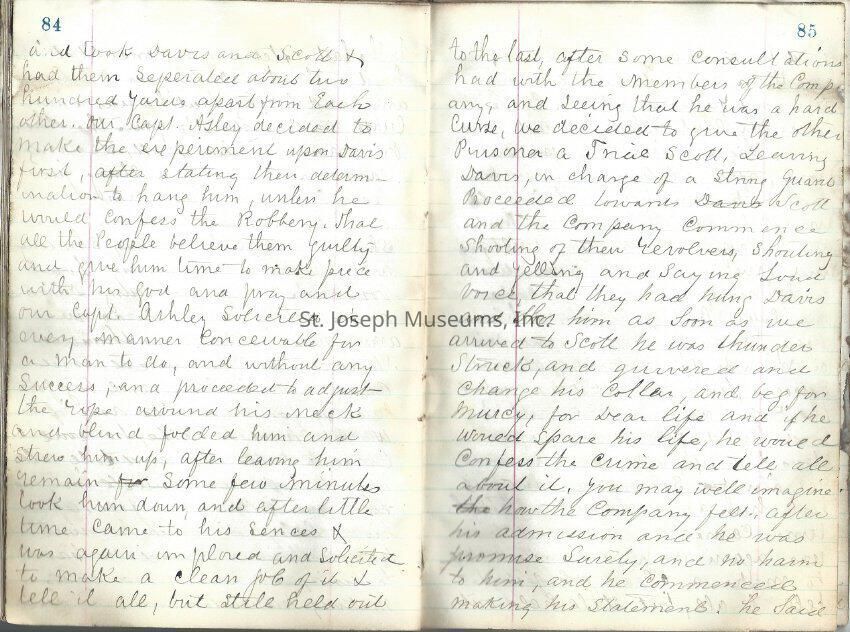 84
and took Davis and Scott &
had them Seperated about two
hundred Yards apart from Each
other. Our Capt. Asley decided to
make the experement upon Davis
first, after stating their determ-
ination to hang him, unless he
would Confess the Robbery. That
all the People believe them guilty
and give him time to make piece
with his God and pray and
our Capt. Ashley Solicited
every manner Conceivable for
a man to do, and without any
Success, and proceeded to adjust
the rope around his neck
and blind folded him and
strew him up, after leaving him
remain for Some few minutes
took him down, and after little
time came to his Sences &
was again implored and Solicited
to make a clean job of it &
tell it all, but still held out
85
to the last, after Some Consultations
had with the Members of the Comp
any, and Seeing that he was a hard
Curse, we decided to give the other
Prisoner a Trial Scott, Leaving
Davis, in charge of a Strong Guard
Proceeded towards Davis Scott
and the Company Commence
Shooting of their revolvers, Shouting
and yelling and Saying Loud
Voice, that they had hung Davis
and Shot him as Soon as we
arrived to Scott he was thunder
Struck, and quivered and
Change his Collar, and beg for
Murcy, for Dear life and if he
would Spare his life, he would
Confess the Crime and tell all
about it. You may well imagine
the how the Company felt, after
his admission and he was
promise Surety, and no harm
to him, and he Commenced
making his Statement. he Said
St. Joseph Museums, Inc.